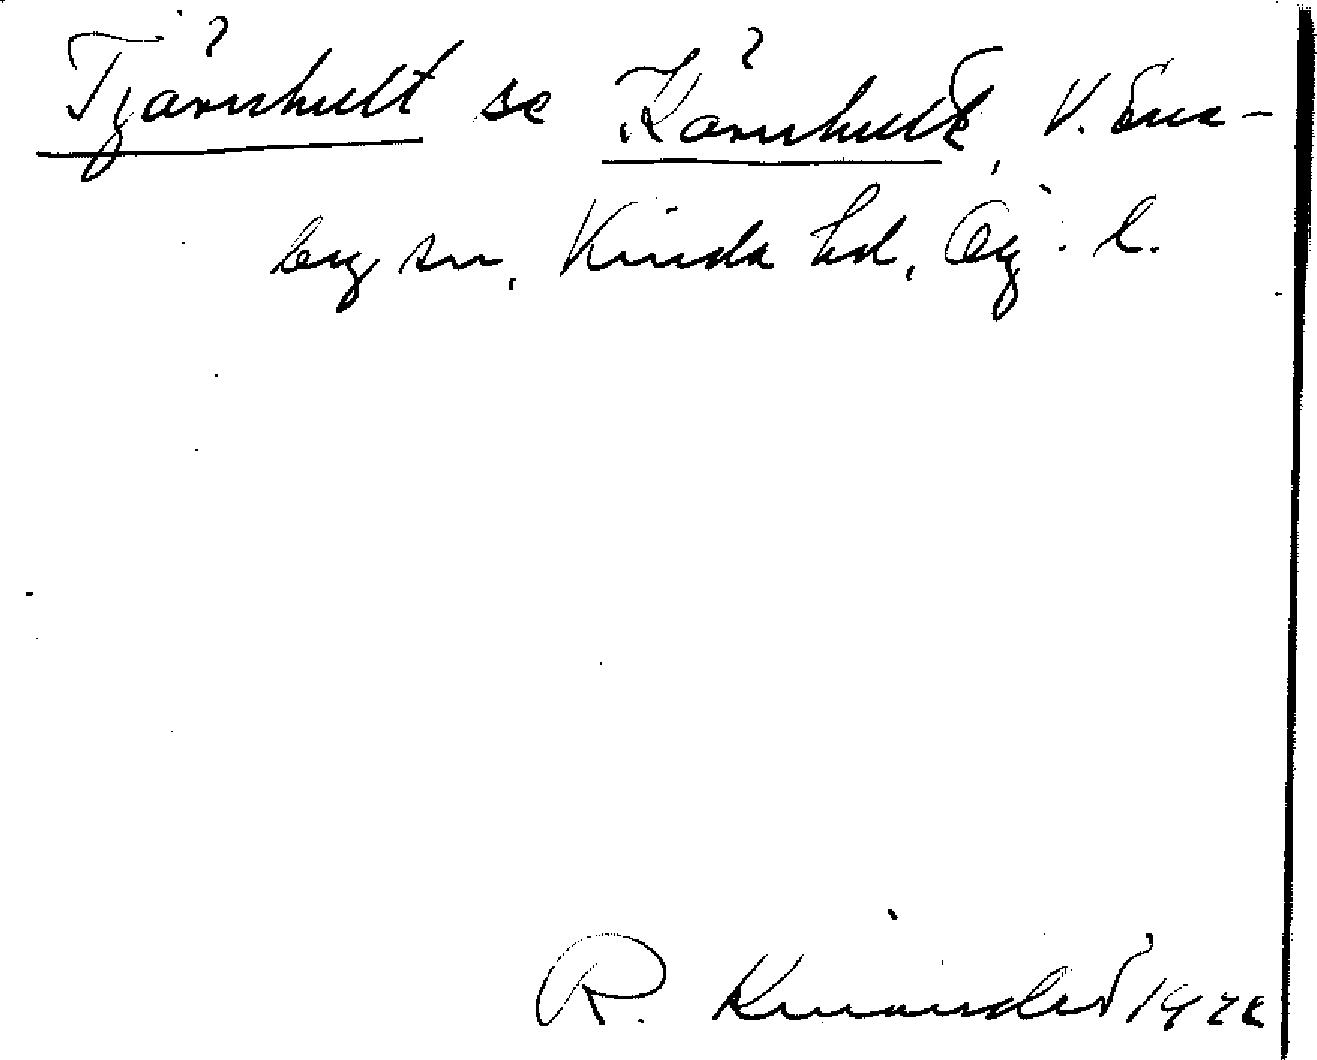 Tjärnhult se Kärnhult, V. Ene-
by sn, Kinda hd, Ög. l.
R. Kinander 1922